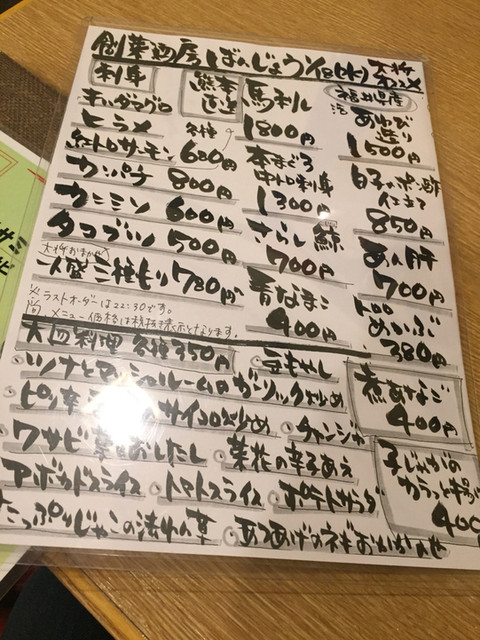 創菜酒房 ばんじょう 1/18(水)
刺身
熊本直送
馬刺し
1800円
キハダマグロ
ヒラメ
各種
紅トロサーモン 680円
カンパチ 800円
カニミソ 600円
タコブツ 500円
大盛三種もり 780円
※ラストオーダーは22:30です。
尚、メニュー価格は税抜き表示となります。
本まぐろ
中トロ刺身
1300円
さらし鯨
700円
青なまこ
400円
福井県産
あわび
造り
1500円
白子のポン酢
仕立て
850円
あん肝
700円
トロロ
めかぶ
380円
大皿料理 各種350円
豆もやし
ツナと
ルームのガーリック炒め
ピリ辛
サイコロ炒め
チャンジャ
ワサビ菜おしたし
菜花の辛子あえ
アボカドスライス
トマトスライス
ポテトサラダ
たっぷりじゃこの法蓮草
あつあげのネギおかかのせ
煮あなご
400円
子じゃがの
カラッと揚げ
400円